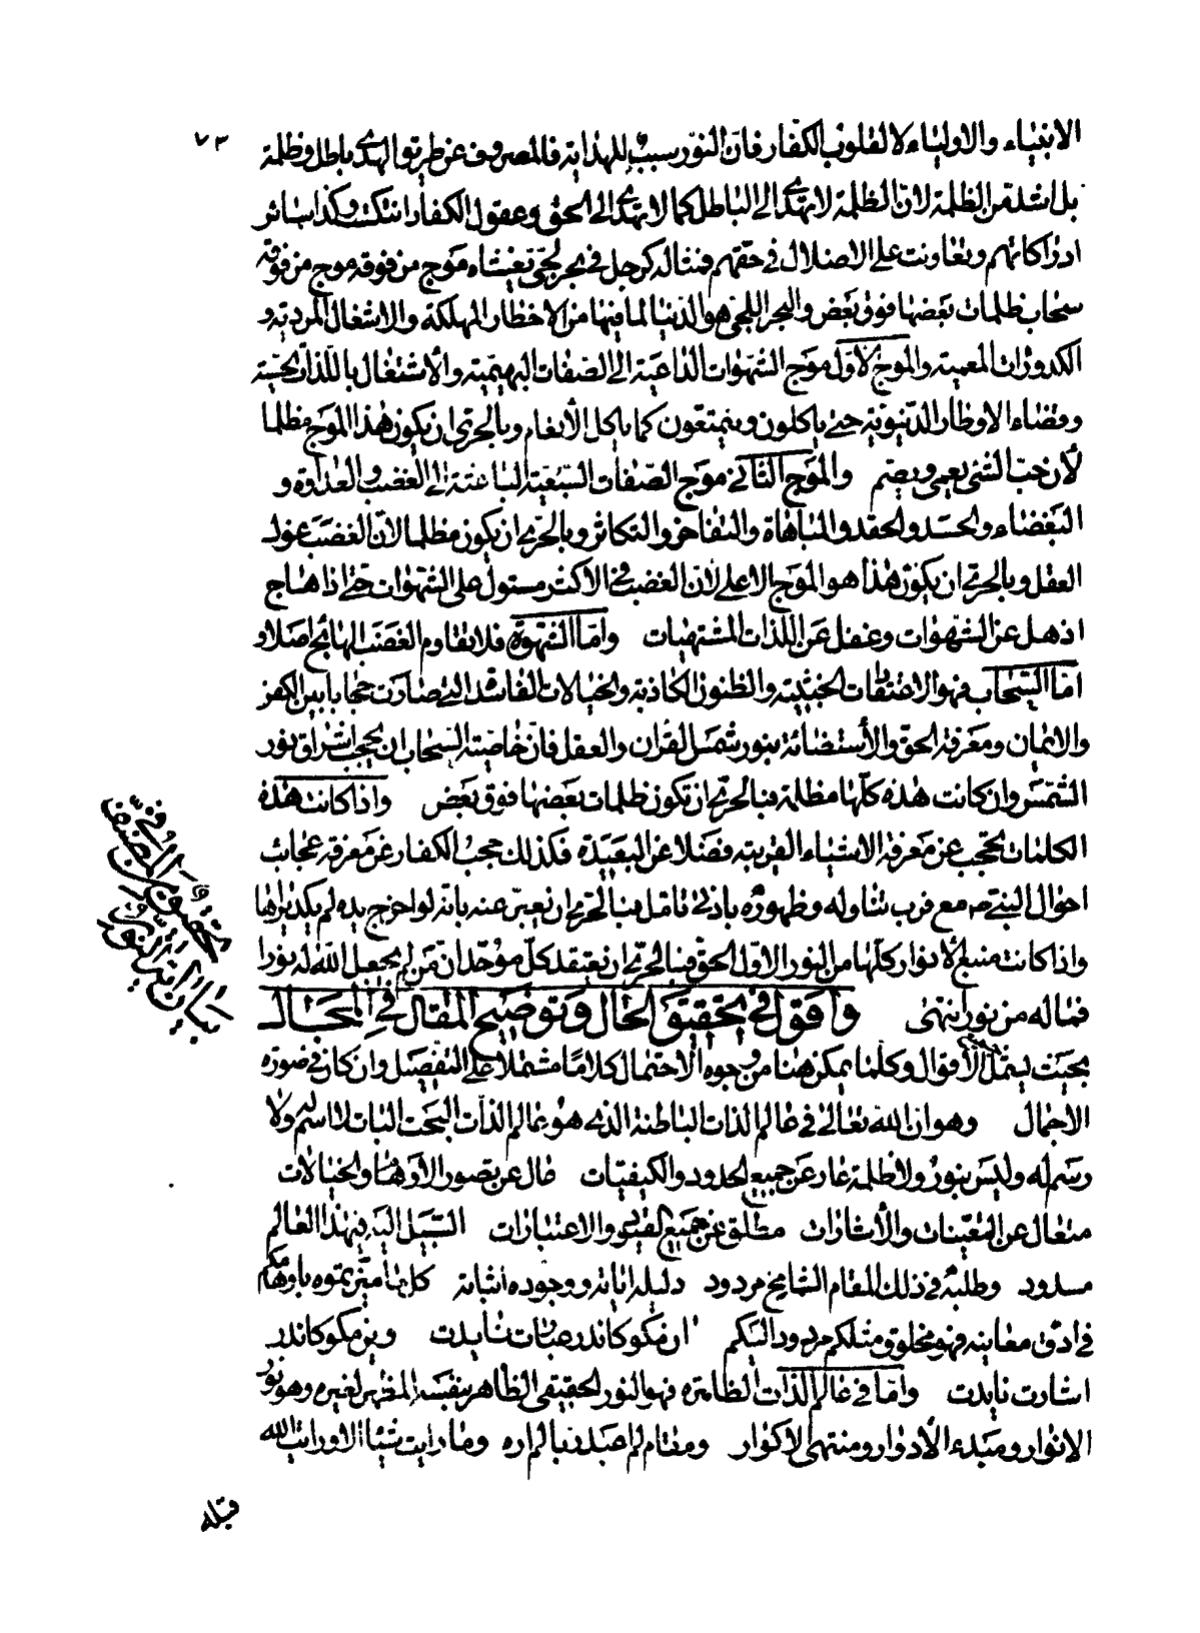 ٧٣
الانبياء والاولياء لا لقلوب الكفار فانّ النور سبب للهداية فالمصروف عن طريق الهدى باطل وظلمة
بل اشد من الظلمة لان الظلمة لا تهتدى الى الباطل كما لا تهتدى الى الحق وعقول الكفار انتكست وكذا سائر
ادراكاتهم وتعاونت على الاضلال فى حقهم فمثاله كرجل فى بحر لجىّ يغشاه موج من فوقه موج من فوقه
سحاب ظلمات بعضها فوق بعض والبحر اللجى هو الدنيا لما فيها من الاخطار المهلكة والاشغال المردية و
الكدورات المعمية والموج الاول موج الشهوات الداعية الى الصفات البهيمية والاشتغال باللذات الحسية
وقضاء الاوطار الدنيوية حتى ياكلون ويتمتعون كما ياكل الأنعام وبالحرىّ ان يكون هذا الموج مظلما
لأن حبّ الشئ يعمى ويصم والموج الثانى موج الصفات السبعية الباعثة الى الغضب والعداوة و
البغضاء والحسد والحقد والمباهاة والتفاخر والتكاثر وبالحرىّ ان يكون مظلما لانّ الغضب غول
العقل وبالحرىّ ان يكون هذا هو الموج الاعلى لانّ الغضب فى الاكثر مستول على الشهوات حتى اذا هاج
اذهل عن الشهوات وغفل عن اللذات المشتهيات وامّا الشهوة فلا تقاوم الغضب الهائج اصلا و
امّا السحاب فهو الاعتقادات الخبيثة والظنون الكاذبة والخيالات الفاسدة التى صارت حجابا بين الكفر
والايمان ومعرفة الحق والأستضائة بنور شمس القران والعقل فان خاصية السحاب ان يحجب اشراق نور
الشمس وان كانت هذه كلها مظلمة فبالحرىّ ان تكون ظلمات بعضها فوق بعض واذا كانت هذه
الكلمات تحجب عن معرفة الاشياء القريبة فضلا عن البعيدة فكذلك حجب الكفار عن معرفة عجائب
احوال النبى ص مع قرب تناوله وظهوره بادنى تامل فبالحرىّ ان يعبّر عنه بانه لو اخرج يده لم يكد يراها
واذا كانت منبع الانوار كلها من النور الاول الحق فبالحرىّ ان يعتقد كل موحّد ان من لم يجعل الله له نورا
فما له من نور انتهى واقول فى تحقيق الحال وتوضيح المقال فى المجال
بحيث يشمل الأقوال وكلما يمكن هنا من وجوه الاحتمال كلاما مشتملا على التفصيل وان كان فى صورة
الاجمال وهو ان الله تعالى فى عالم الذات الباطنة الذى هو عالم الذات البحت البات لا اسم له ولا
رسم له وليس بنور ولا ظلمة عار عن جميع الحدود والكيفيات عال عن تصور الأوهام والخيالات
متعال عن التعينات والأشارات مطلق عن جميع القيود والاعتبارات السبيل اليه فى هذا العالم
مسدود وطلبه فى ذلك المقام الشامخ مردود دليله اياته ووجوده اثباته كلما ميّزتموه باوهامكم
فى ادق معانيه فهو مخلوق مثلكم مردود اليكم ان مكو كاندر عبارات نايدت وين مكو كاندر
اشارت نايدت وامّا فى عالم الذات الظاهرة فهو النور الحقيقى الظاهر بنفسه المظهر لغيره وهو نور
الانوار ومبدء الأدوار ومنتهى الاكوار ومقام لم اعبد ربا لم اره وما رايت شيئا الا ورايت الله
قبله
فى
المصنف
تحقيق من
بيان اية النور